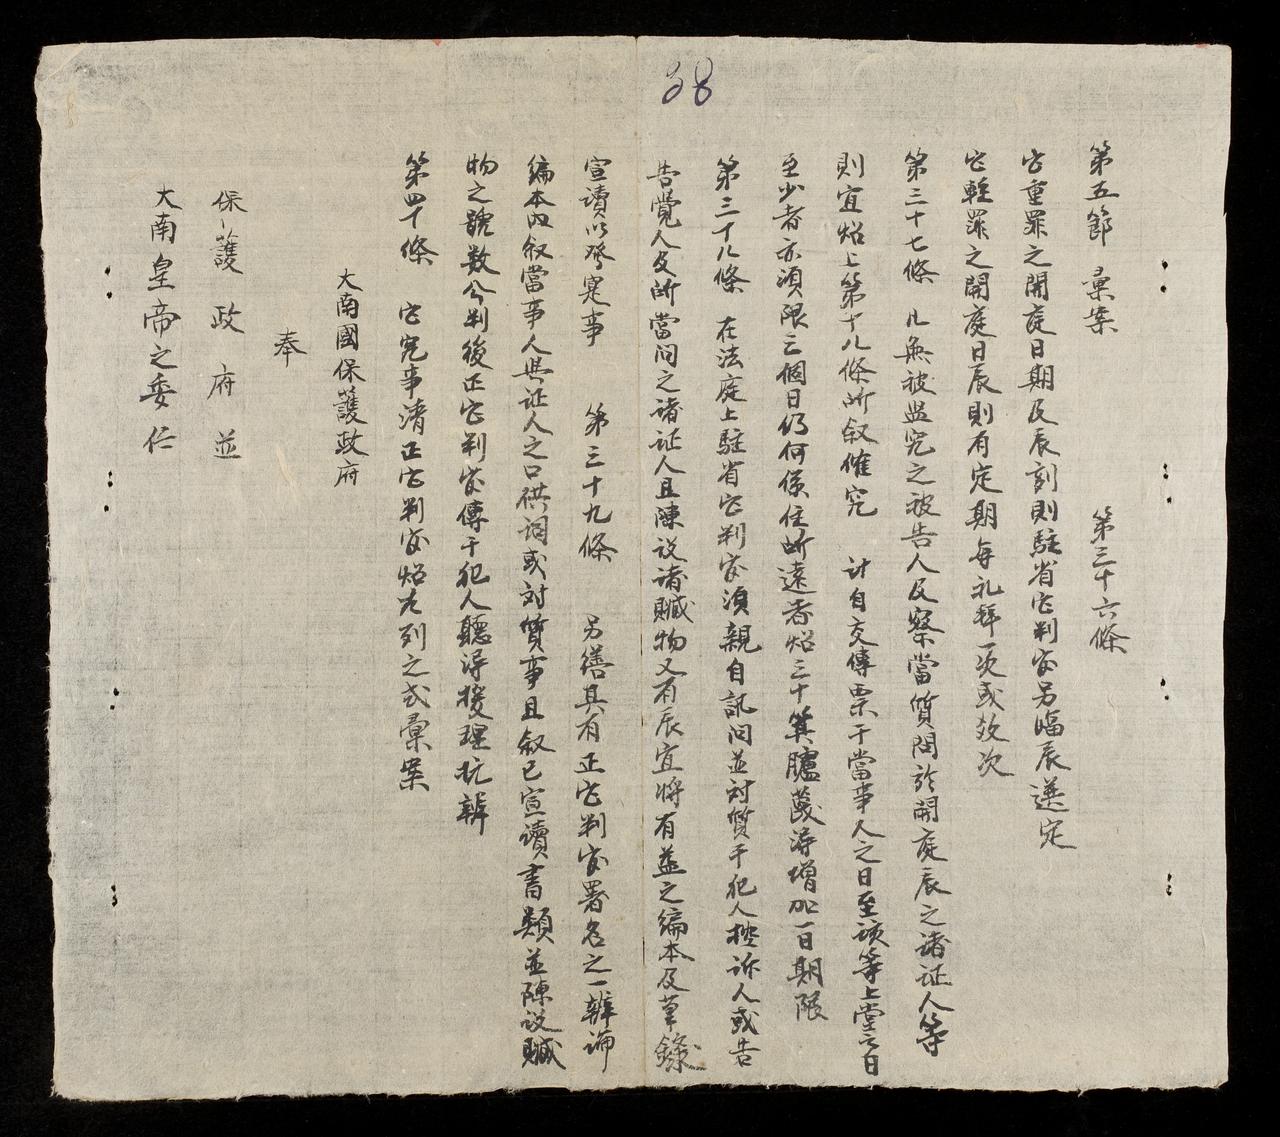 38
第五節 彙案 第三十六條
它重罪之開庭日期及辰刻則駐省它判官另臨辰選定
它輕罪之開庭日辰則有定期每礼拜一次或数次
第三十七條 凡無被監究之被告人及察當質問於開庭辰之諸证人等
則宜炤上第十八條所叙催究 計自交傳票于當事人之日至该等上堂之日
至少者亦須限三個日仍何係住所遠者炤三十箕臚蔑淂增加一日期限
第三十八條 在法庭上駐省它判官須親自訊问並対質于犯人控诉人或告
告覺人及所當问之诸证人且陳说诸贓物又有辰宜将有益之编本及草錄
宣讀以登寔事 第三十九條 另繕具有正它判官署名之一辨论
编本内叙當事人與证人之口供词或対質事且叙已宣讀書類並陳说贓
物之號数兮判後正它判官傳于犯人聽淂援理抗辨
第四十條 它完事清正它判官炤左列之式彙案
大南國保護政府
奉
保護政府並
大南皇帝之委任